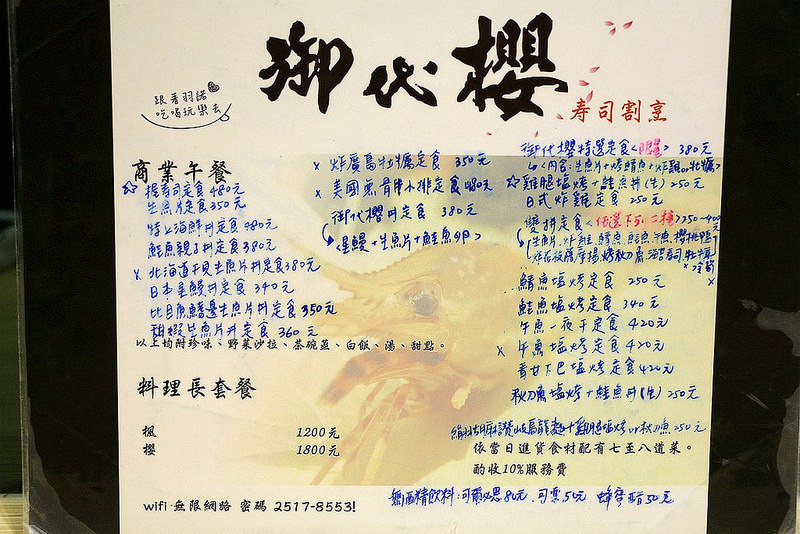 御代櫻
寿司割烹
跟著羽諾
吃喝玩樂去
商業午餐
握壽司定食 480元
生魚片定食 350元
特上海鮮丼定食 480元
鮭魚親子丼定食 380元
x 北海道干貝生魚片丼定食 380元
日本星鰻丼定食 340元
比目魚鰭邊生魚片丼定食 350元
甜蝦生魚片丼定食 360元
以上均附珍味、野菜沙拉、茶碗蒸、白飯、湯、甜點。
x 炸廣島牡蠣定食 350元
x 美國無骨牛小排定食 480元
御代櫻丼定食 380元
<星鰻+生魚片+鮭魚卵>
料理長套餐
楓 1200元
櫻 1800元
御代櫻特選定食 380元
<內含:生魚片+烤鯖魚+炸雞or牡蠣>
雞腿塩烤+鮭魚丼(生) 250元
日式炸雞定食 250元
雙拼定食<任選下列二種>350-400元
鯖魚塩烤定食 250元
鮭魚塩烤定食 340元
午魚一夜干定食 420元
x 午魚塩烤定食 420元
青甘下巴塩烤定食 420元
秋刀魚塩烤+鮭魚丼(生) 250元
依當日進貨食材配有七至八道菜。
酌收10%服務費
wifi 無限網路 密碼 2517-8553!
無酒精飲料:可爾必思 80元、可樂 50元 蜂蜜醋 50元